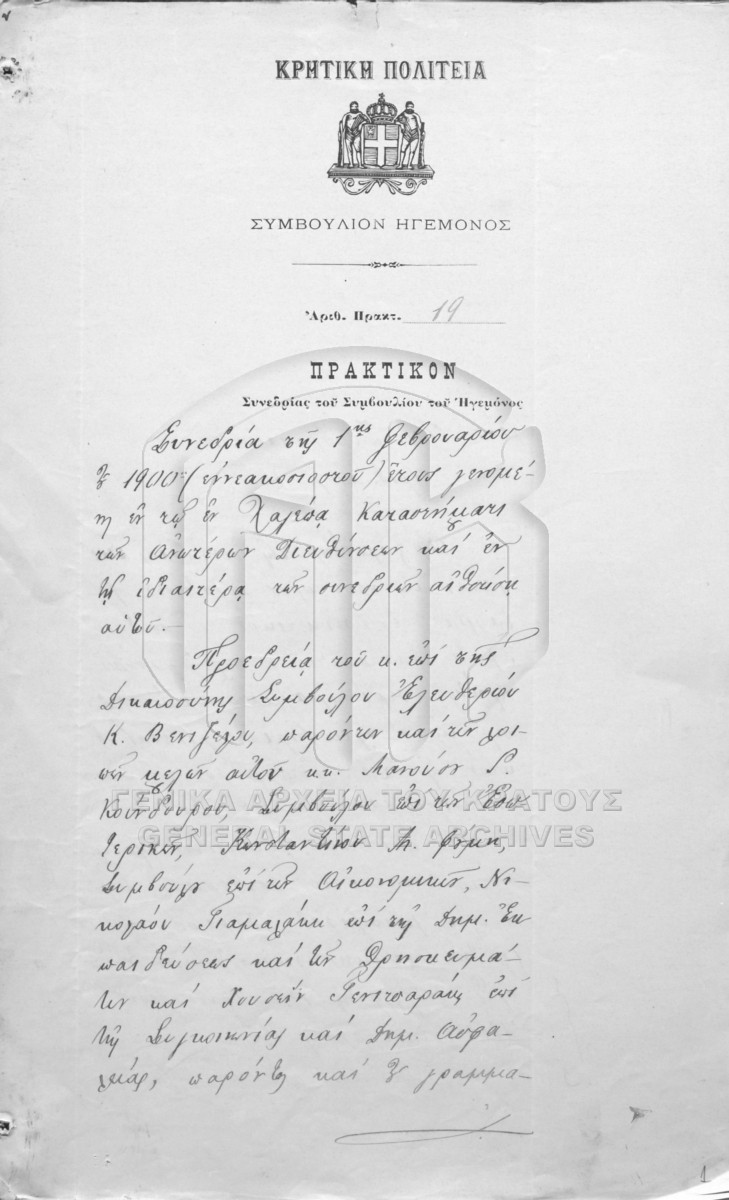 ΚΡΗΤΙΚΗ ΠΟΛΙΤΕΙΑ
ΣΥΜΒΟΥΛΙΟΝ ΗΓΕΜΟΝΟΣ
Ἀριθ. Πρακτ. 19
ΠΡΑΚΤΙΚΟΝ
Συνεδρίας τοῦ Συμβουλίου τοῦ Ἡγεμόνος
Συνεδρία τῆς 1ης Φεβρουαρίου
τοῦ 1900 (ἐννεακοσιοστοῦ) ἔτους γενομέ-
νη ἐν τῷ ἐν Χαλέπᾳ Καταστήματι
τῶν Ἀνωτέρων Διευθύνσεων καί ἐν
τῇ ἰδιαιτέρᾳ τῶν συνεδριῶν αἰθούσῃ
αὐτοῦ.-
Προεδρείᾳ τοῦ κ. ἐπί τῆς
Δικαιοσύνης Συμβούλου Ἐλευθερίου
Κ. Βενιζέλου, παρόντων καί τῶν λοι-
πῶν μελῶν αὐτοῦ κ.κ. Μανούσου Ρ.
Κούνδουρου, Συμβούλου ἐπί τῶν Ἐσω
τερικῶν, Κωνσταντίνου Μ. Φούμη,
Συμβούλου ἐπί τῶν Οἰκονομικῶν, Νι-
κολάου Γιαμαλάκη ἐπί τῆς Δημ. Ἐκ
παιδεύσεως καί τῶν Θρησκευμά-
των καί Χουσεΐν Γενιτσαράκη ἐπί
τῆς Συγκοινωνίας καί Δημ. Ἀσφα-
λείας, παρόντος καί τοῦ γραμμα-
1
ΓΕΝΙΚΑ ΑΡΧΕΙΑ ΤΟΥ ΚΡΑΤΟΥΣ
GENERAL STATE ARCHIVES